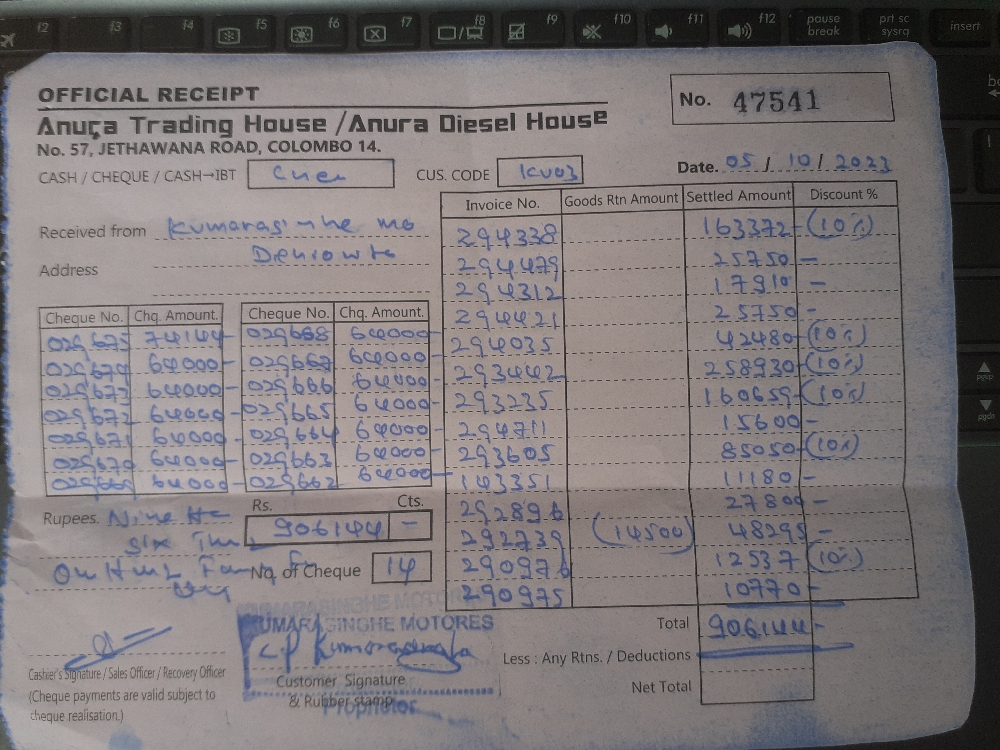 f2 f3 f4 f5 f6 f7 f8 f9 f10 f11 f12 pause break prt sc sysrq insert
OFFICIAL RECEIPT
No. 47541
Anura Trading House /Anura Diesel House
No. 57, JETHAWANA ROAD, COLOMBO 14.
Date. 05 / 10 / 2023
CASH / CHEQUE / CASH→IBT
CUS. CODE KU03
Received from Kumarasinhe mo
Address
Invoice No. Goods Rtn Amount Settled Amount Discount %
294338 163372- (10%)
294479 25750-
294312 17910-
294421 25750-
294035 42480- (10%)
293442 258930- (10%)
293235 160659- (10%)
294711 15600-
293605 85050- (10%)
143351 11180-
292896 27800-
292739 (14500) 48295-
290976 12537- (10%)
290975 10770-
Cheque No. Chq. Amount. Cheque No. Chq. Amount.
029675 74144- 029668 64000-
029674 64000- 029667 64000-
029673 64000- 029666 64000-
029672 64000- 029665 64000-
029671 64000- 029664 64000-
029670 64000- 029663 64000-
029669 64000- 029662 64000-
Rs. Cts.
Rupees. Nine
906144 -
Six
No. of Cheque 14
Total 906144-
Less : Any Rtns. / Deductions
Net Total
KUMARASINGHE MOTORES
Cashier's Signature / Sales Officer / Recovery Officer
Customer Signature
& Rubber stamp
Proprietor
(Cheque payments are valid subject to
cheque realisation.)
pgup
pgdn